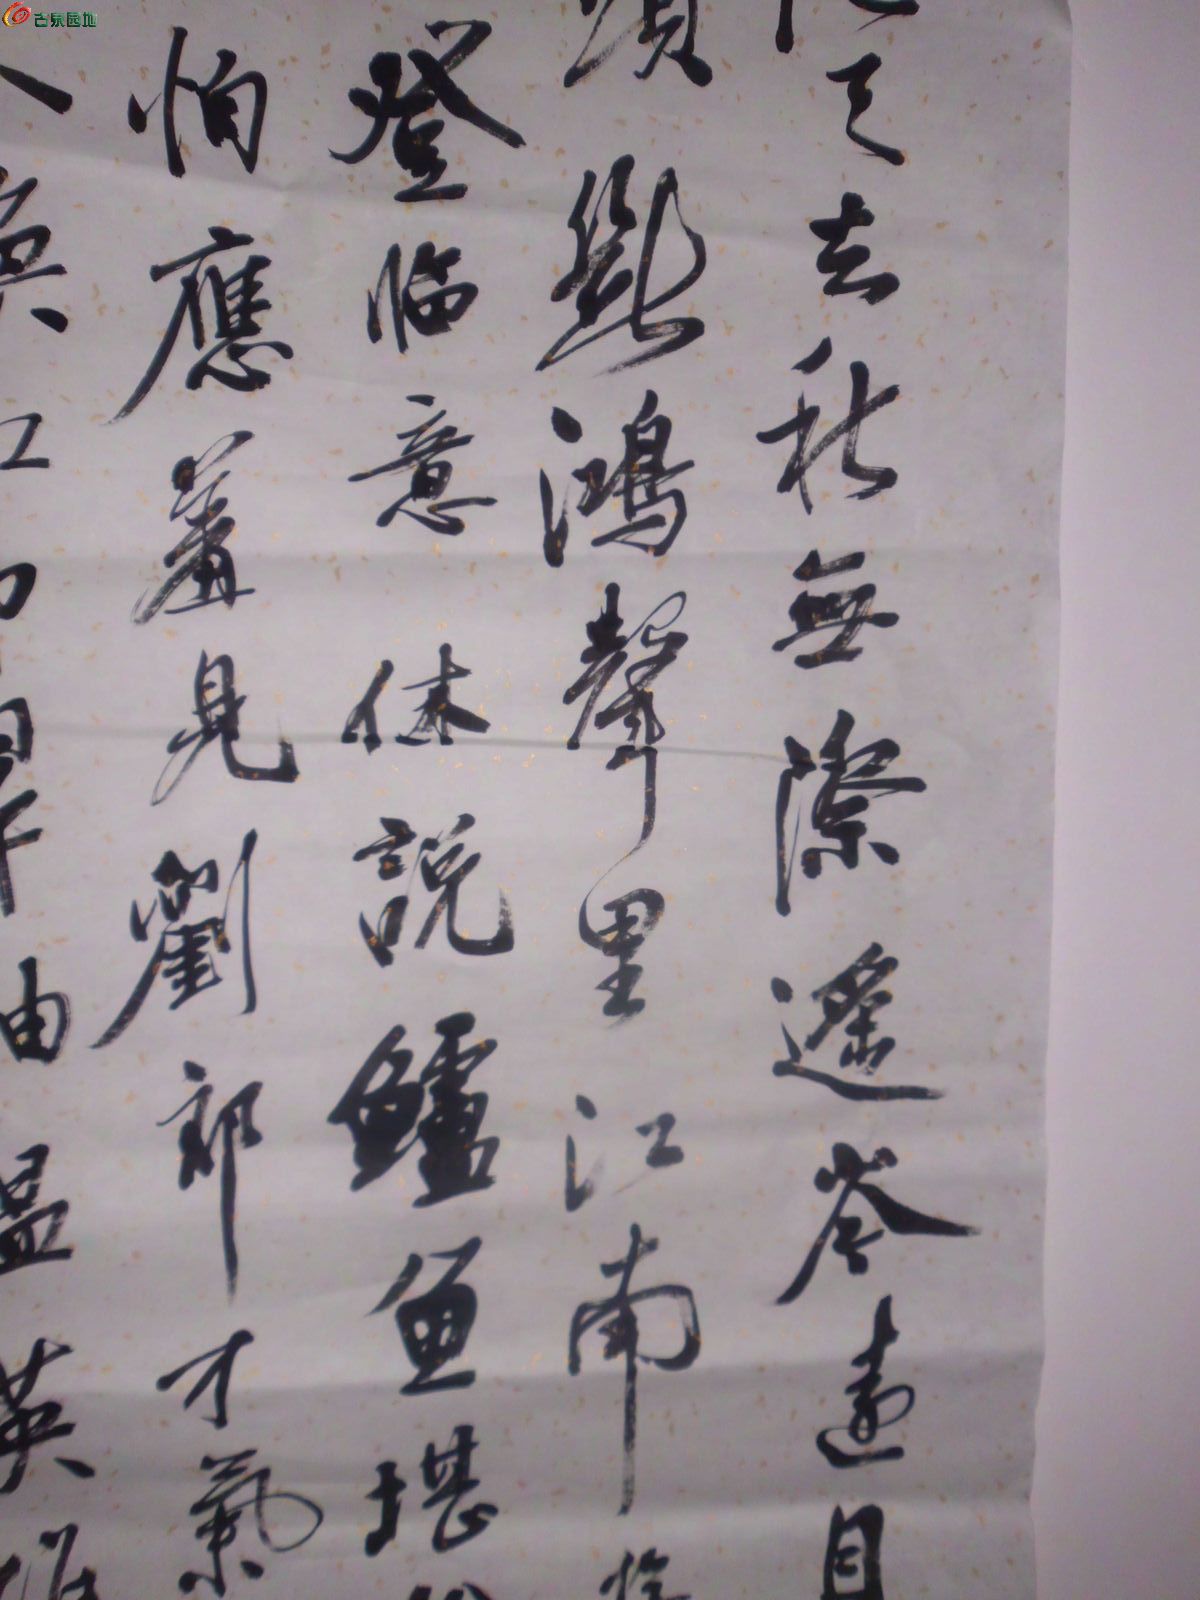 古泉园地
天去秋無際遙岑遠目
頭斷鴻聲里江南
登临意休説鱸魚堪
怕應羞見劉郎才氣
英